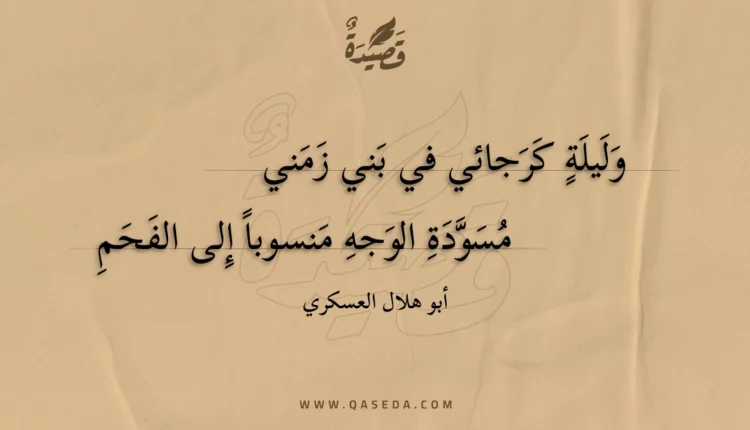 قَصِيدَةٌ
وَلَيلَةٍ كَرَجائي في بَني زَمَني
مُسَوَّدَةِ الوَجهِ مَنسوباً إِلى الفَحَمِ
أبو هلال العسكري
WWW.QASEDA.COM